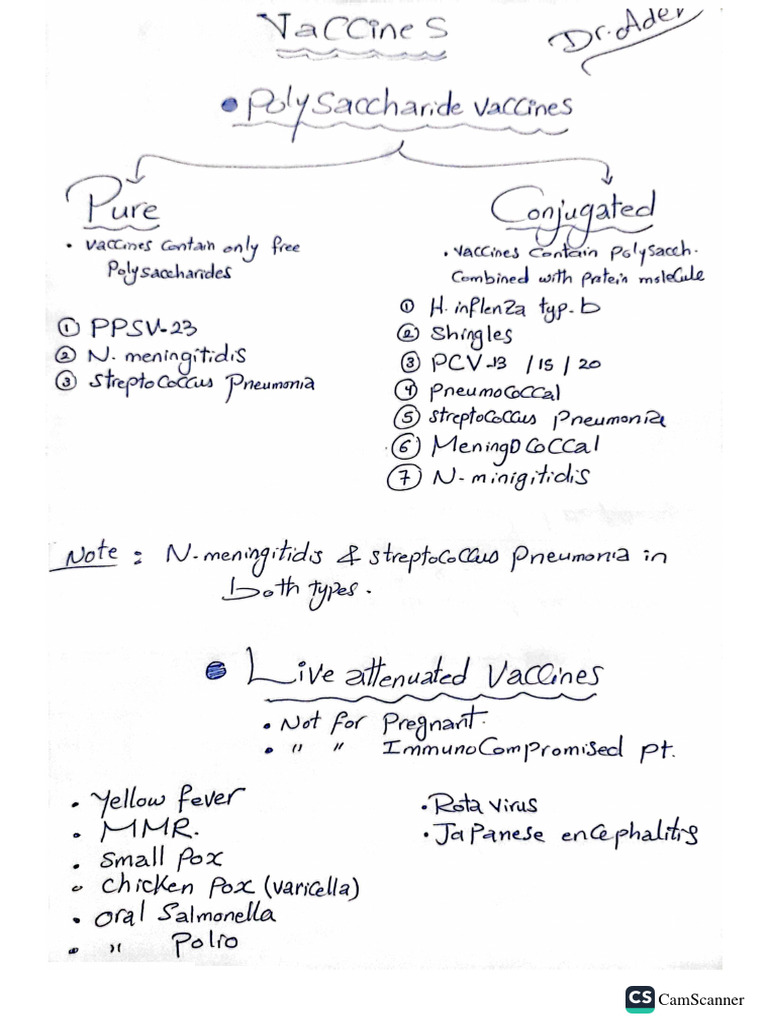 Vaccines
Dr. Ader
• Polysaccharide vaccines
Pure
• vaccines contain only free
Polysaccharides
① PPSV-23
② N. meningitidis
③ streptococcus Pneumonia
Conjugated
• vaccines contain Polysacch.
Combined with Protein molecule
① H. inflenza typ. b
② Shingles
③ PCV-13 / 15 / 20
④ Pneumococcal
⑤ streptococcus Pneumonia
⑥ Meningococcal
⑦ N- minigitidis
Note : N-meningitidis & streptococcus Pneumonia in
both types.
• Live attenuated Vaccines
• Not for Pregnant.
• " " Immunocompromised pt.
• Yellow fever
• MMR.
• Small Pox
• Chicken Pox (varicella)
• oral Salmonella
• " Polio
• Rota virus
• Japanese encephalitis
CS CamScanner